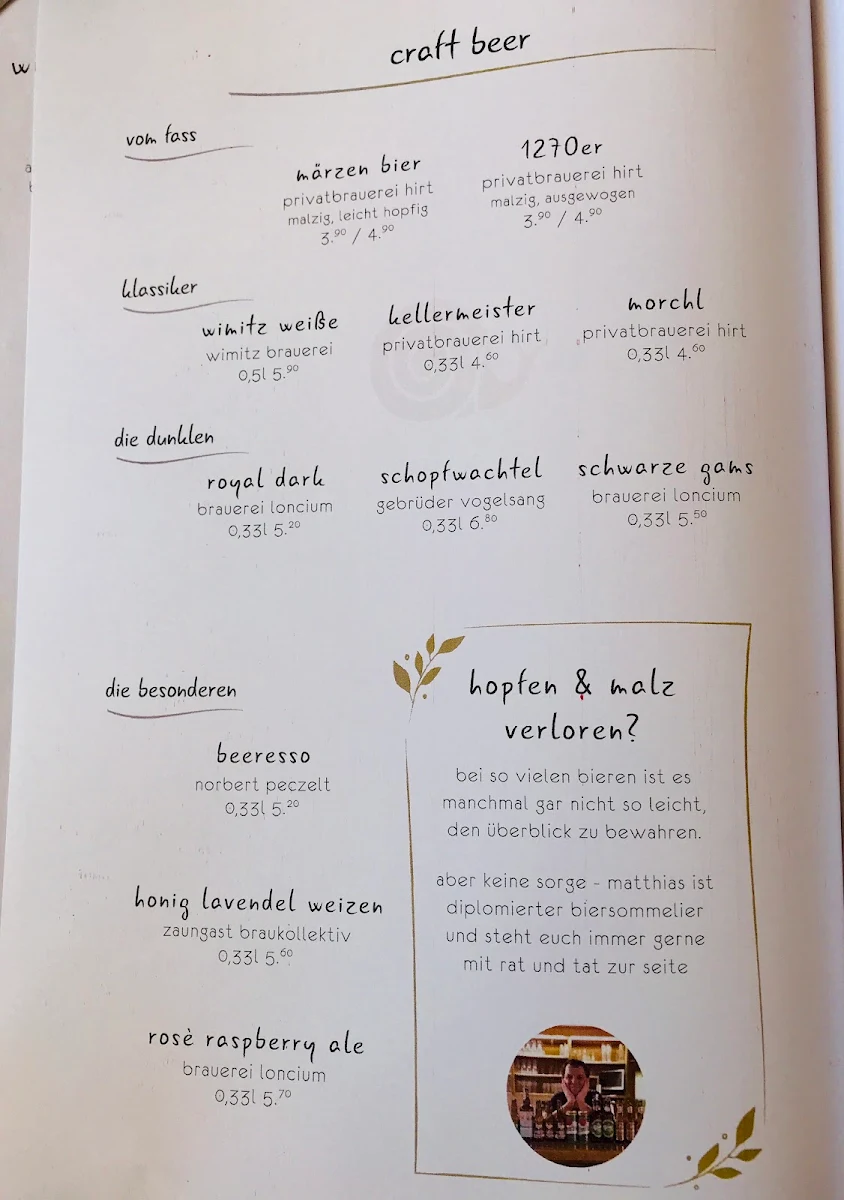 craft beer
vom fass
märzen bier
privatbrauerei hirt
malzig, leicht hopfig
3.90 / 4.90
1270er
privatbrauerei hirt
malzig, ausgewogen
3.90 / 4.90
klassiker
wimitz weiße
wimitz brauerei
0,5l 5.90
kellermeister
privatbrauerei hirt
0,33l 4.60
morchl
privatbrauerei hirt
0,33l 4.60
die dunklen
royal dark
brauerei loncium
0,33l 5.20
schopfwachtel
gebrüder vogelsang
0,33l 6.80
schwarze gams
brauerei loncium
0,33l 5.50
die besonderen
beeresso
norbert peczelt
0,33l 5.20
honig lavendel weizen
zaungast braukollektiv
0,33l 5.60
rosè raspberry ale
brauerei loncium
0,33l 5.70
hopfen & malz
verloren?
bei so vielen bieren ist es
manchmal gar nicht so leicht,
den überblick zu bewahren.
aber keine sorge - matthias ist
diplomierter biersommelier
und steht euch immer gerne
mit rat und tat zur seite